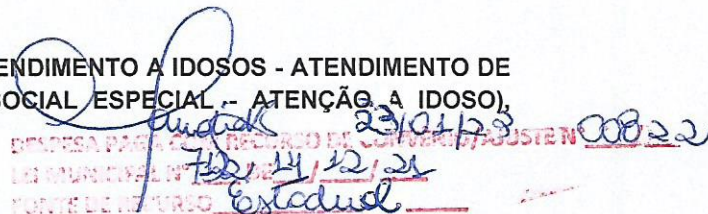 ENDIMENTO A IDOSOS - ATENDIMENTO DE
SOCIAL ESPECIAL - ATENÇÃO A IDOSO),
23/01/23
DESPESA PAGA COM RECURSO DE CONVENIO/AJUSTE N 008 22
LEI MUNICIPAL Nº 722 14/12/21
FONTE DE RECURSO Estadual